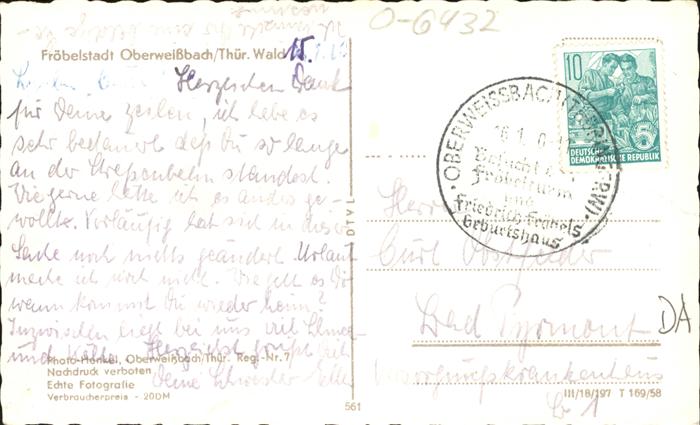 O-6432
Fröbelstadt Oberweißbach/Thür. Wald
15.1.60
Herzlichen Dank
für Deine Zeilen, ich habe es
sehr bedauert daß Du so lange
an der Straßenbahn standest.
Wie gerne hätte ich es anders ge-
wollt. Vorläufig hat sich in dieser
Sache noch nichts geändert. Urlaub
mache ich noch nicht. Wie geht es Dir
wann kommst Du wieder heim?
Inzwischen liegt bei uns viel Schnee
und Kälte. Herzlichst grüßt Dich
Deine Schwester
Photo-Henkel, Oberweißbach/Thür. Reg.-Nr. 7
Nachdruck verboten
Echte Fotografie
Verbraucherpreis - 20DM
DTVL
561
10
5
DEUTSCHE
DEMOKRATISCHE REPUBLIK
OBERWEISSBACH (THÜRINGERW)
Besucht den
Fröbelturm
und
Friedrich Fröbels
Geburtshaus
Herrn
Curt
Bad Pyrmont
Versorgungskrankenhaus
DA
III/18/197 T 169/58